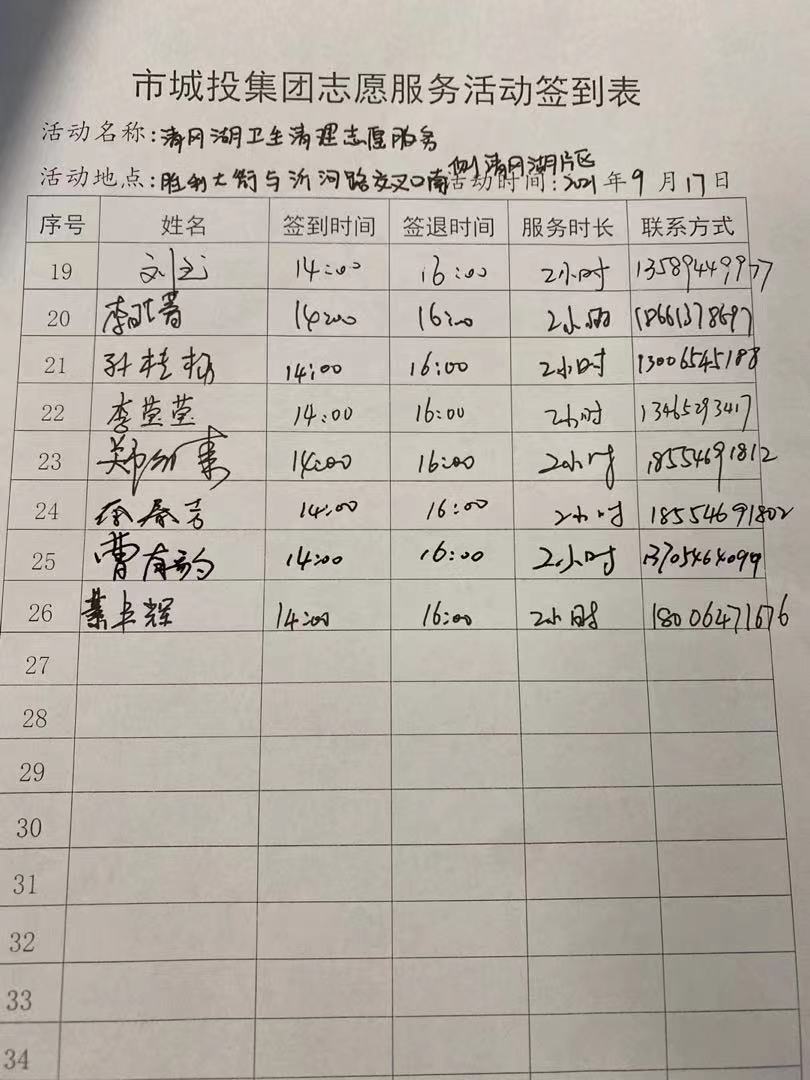 市城投集团志愿服务活动签到表
活动名称:清风湖卫生清理志愿服务
活动地点:胜利大街与沂河路交叉口南侧清风湖片区 活动时间:2021年9月17日
序号 姓名 签到时间 签退时间 服务时长 联系方式
19 刘 14:00 16:00 2小时 13589449977
20 李 14:00 16:00 2小时 18661378697
21 孙桂杨 14:00 16:00 2小时 13006545188
22 李莹莹 14:00 16:00 2小时 13465293417
23 郑 14:00 16:00 2小时 18554691812
24 徐春 14:00 16:00 2小时 18554691802
25 曹有韵 14:00 16:00 2小时 13705464099
26 辉 14:00 16:00 2小时 18006471676
27
28
29
30
31
32
33
34